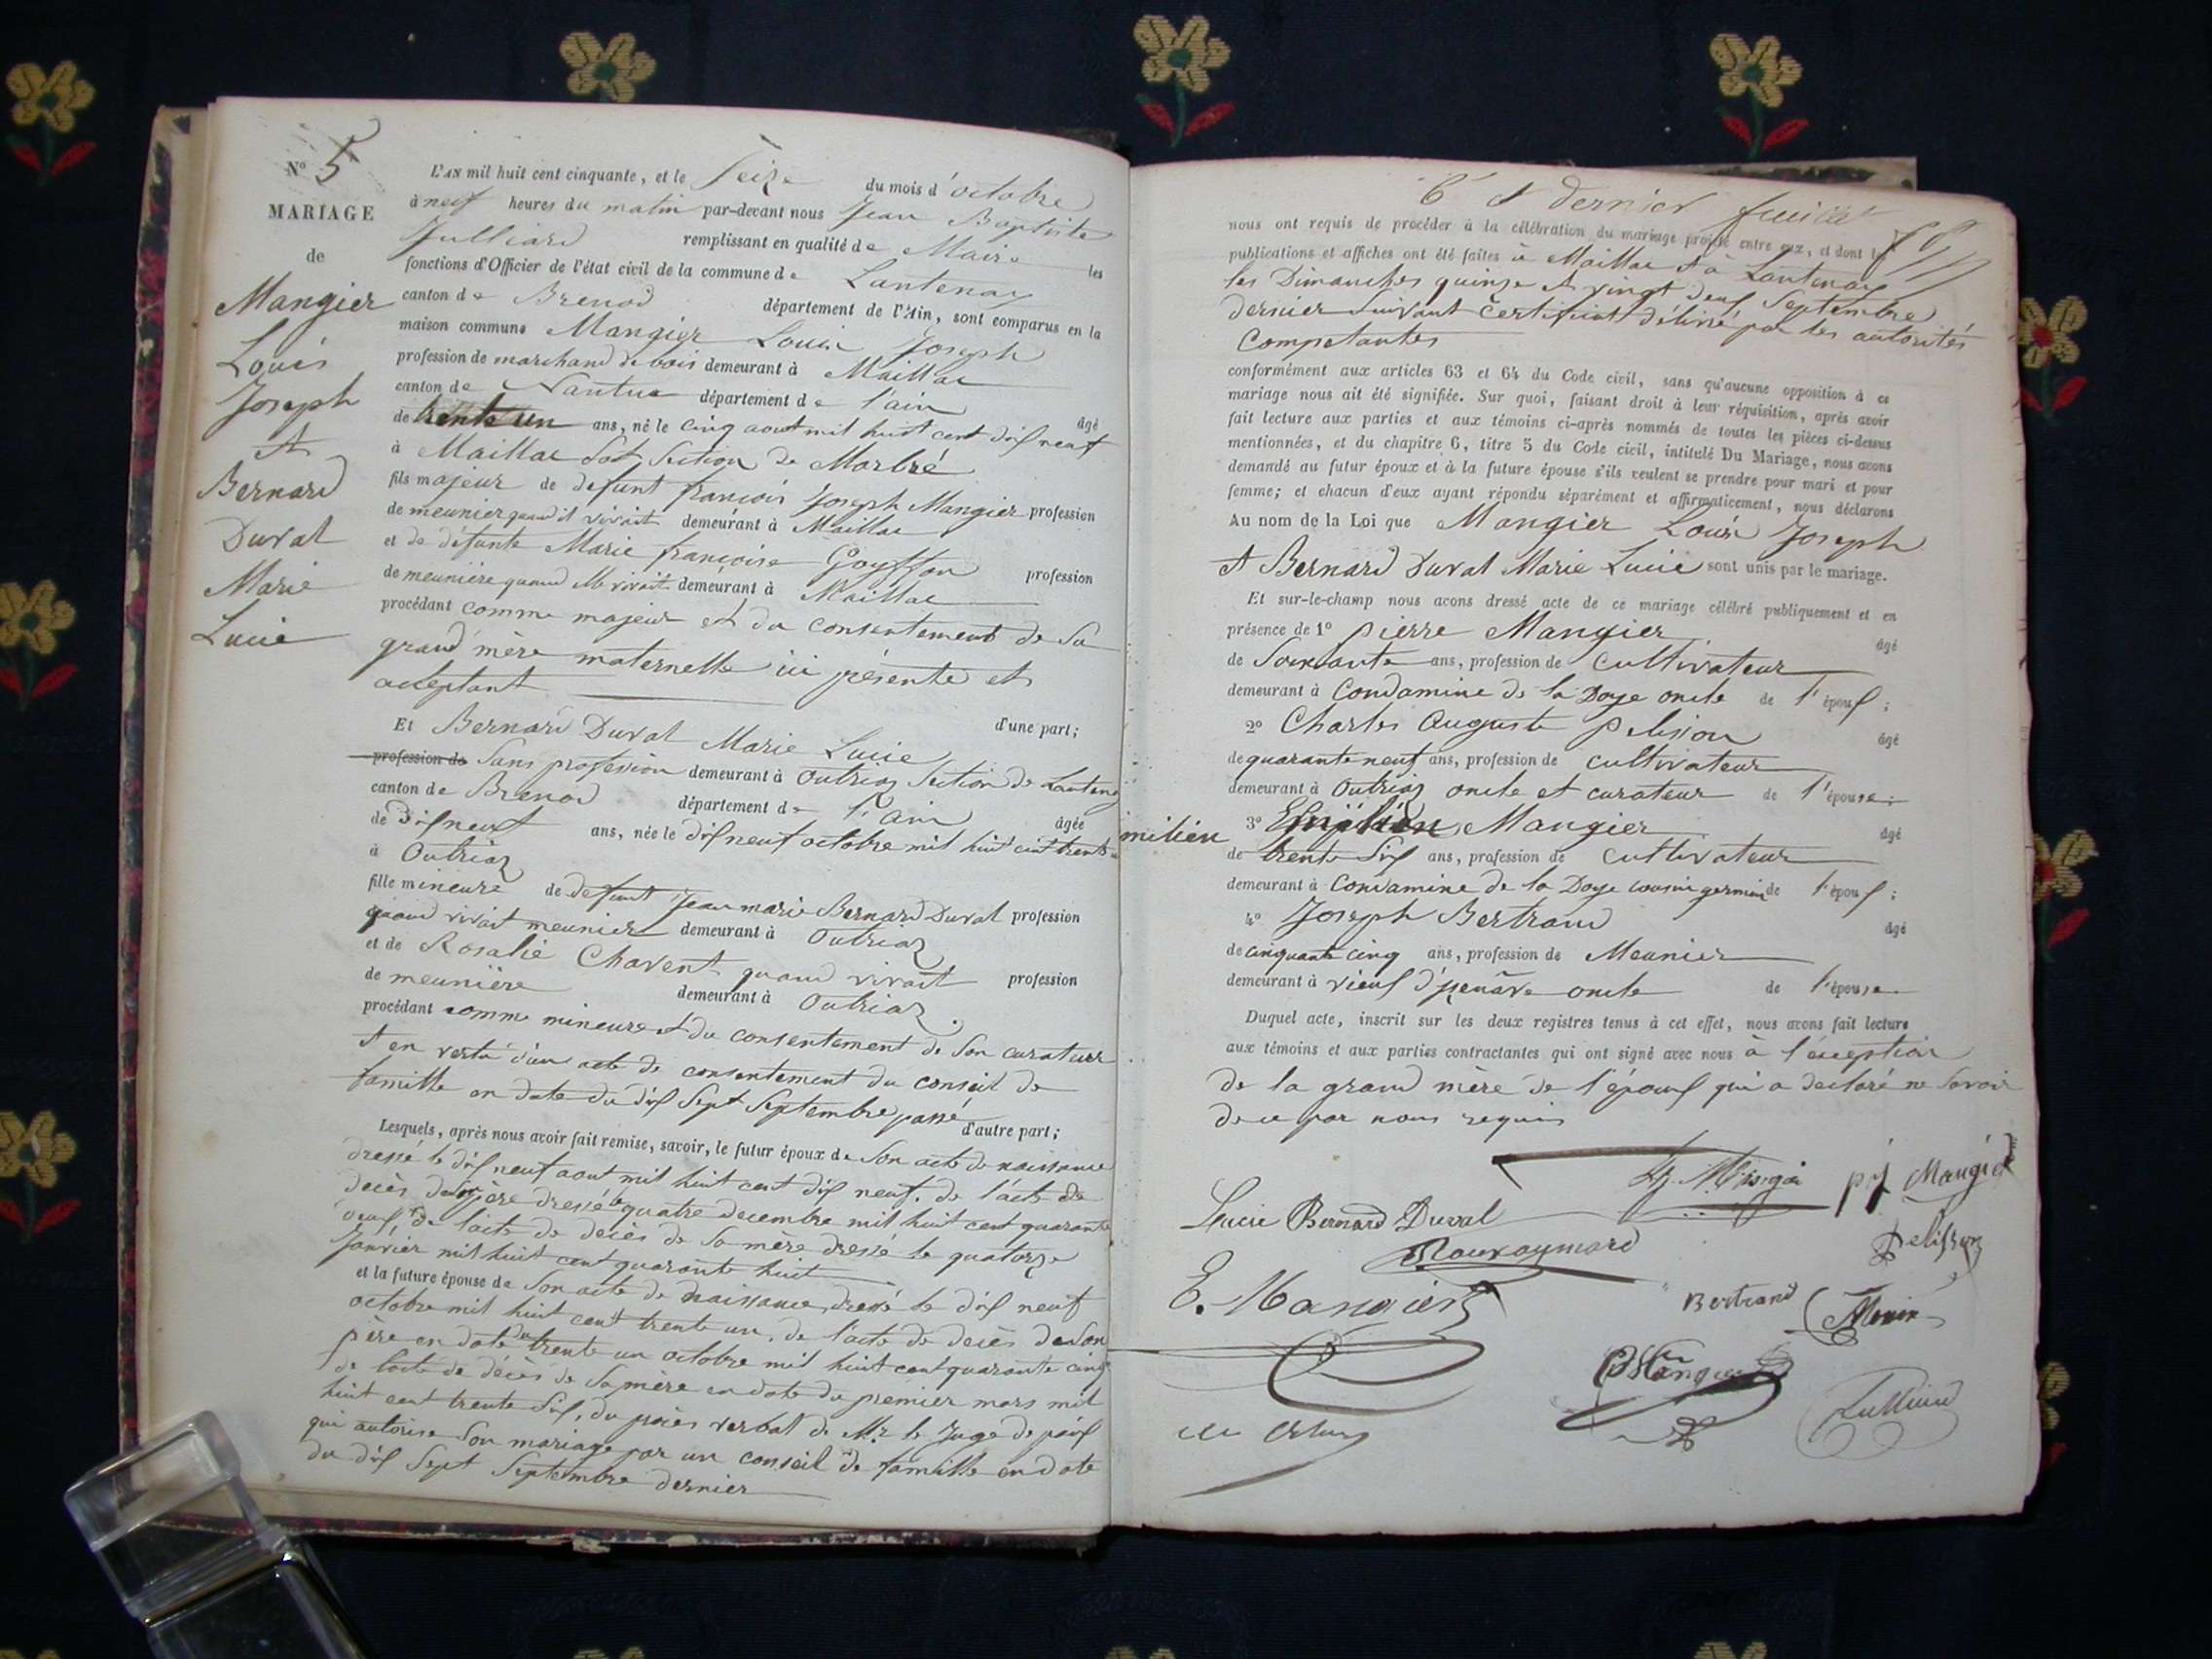 N° 5
MARIAGE
de
Mangier
Louis
Joseph
et
Bernard
Duval
Marie
Lucie
L'AN mil huit cent cinquante, et le Seize du mois d'octobre
à neuf heures du matin par-devant nous Jean Baptiste
Julliard remplissant en qualité de Maire les
fonctions d'Officier de l'état civil de la commune de Lantenay
canton de Brenod département de l'Ain, sont comparus en la
maison commune Mangier Louis Joseph
profession de marchand de bois demeurant à Maillac
canton de Nantua département de l'ain âgé
de trente un ans, né le cinq aout mil huit cent dix neuf
à Maillac Section de Marbré
fils majeur de defunt françois Joseph Mangier profession
de meunier quand il vivait demeurant à Maillac
et de défunte Marie françoise profession
de meunière quand elle vivait demeurant à Maillac
procédant comme majeur et du consentement de Sa
grand'mère maternelle ici présente et
acceptant
d'une part;
Et Bernard Duval Marie Lucie
profession de Sans profession demeurant à Outriaz Section de Lantenay
canton de Brenod département de l'ain âgée
de dix neuf ans, née le dix neuf octobre mil huit cent trente un
à Outriaz
fille mineure de defunt Jean marie Bernard Duval profession
quand vivait meunier demeurant à Outriaz
et de Rosalie Chavent quand vivait profession
de meunière demeurant à Outriaz.
procédant comme mineure et du consentement de Son curateur
et en vertu d'un acte de consentement du conseil de
famille en date du dix Sept Septembre passé
d'autre part;
Lesquels, après nous avoir fait remise, savoir, le futur époux de Son acte de naissance
dressé le dix neuf aout mil huit cent dix neuf. de l'acte de
décès de Son père dressé le quatre decembre mil huit cent quarante
deux, de l'acte de décès de Sa mère dressé le quatorze
Janvier mil huit cent quarante huit
et la future épouse de Son acte de naissance dressé le dix neuf
octobre mil huit cent trente un, de l'acte de décès de Son
père en date du trente un octobre mil huit cent quarante cinq
de l'acte de décès de Sa mère en date du premier mars mil
huit cent trente Six, du procès verbal de Mr. le Juge de paix
qui autorise Son mariage par un conseil de famille en date
du dix Sept Septembre dernier
6e et dernier feuillet
nous ont requis de procéder à la célébration du mariage projeté entre eux, et dont les
publications et affiches ont été faites à Maillac et à Lantenay
les Dimanches quinze et vingt deux Septembre
dernier Suivant Certificat délivré par les autorités
Competantes
conformément aux articles 63 et 64 du Code civil, sans qu'aucune opposition à ce
mariage nous ait été signifiée. Sur quoi, faisant droit à leur réquisition, après avoir
fait lecture aux parties et aux témoins ci-après nommés de toutes les pièces ci-dessus
mentionnées, et du chapitre 6, titre 5 du Code civil, intitulé Du Mariage, nous avons
demandé au futur époux et à la future épouse s'ils veulent se prendre pour mari et pour
femme; et chacun d'eux ayant répondu séparément et affirmativement, nous déclarons
Au nom de la Loi que Mangier Louis Joseph
et Bernard Duval Marie Lucie sont unis par le mariage.
Et sur-le-champ nous avons dressé acte de ce mariage célébré publiquement et en
présence de 1° pierre Mangier âgé
de Soixante ans, profession de Cultivateur
demeurant à Condamine de la Doye oncle de l'époux;
2° Charles Auguste Pelisson âgé
de quarante neuf ans, profession de cultivateur
demeurant à Outriaz oncle et curateur de l'épouse;
milien 3° Mangier âgé
de trente Six ans, profession de Cultivateur
demeurant à Condamine de la Doye cousin germain de l'époux;
4° Joseph Bertrand âgé
de cinquante cinq ans, profession de Meunier
demeurant à vieux d'izenâve oncle de l'épouse
Duquel acte, inscrit sur les deux registres tenus à cet effet, nous avons fait lecture
aux témoins et aux parties contractantes qui ont signé avec nous à l'éxception
de la grand mère de l'époux qui a declaré ne Savoir
de ce par nous requis
pj Mangier
Lucie Bernard Duval
Pelisson
E. Mangier
Bertrand
Monin
Julliard